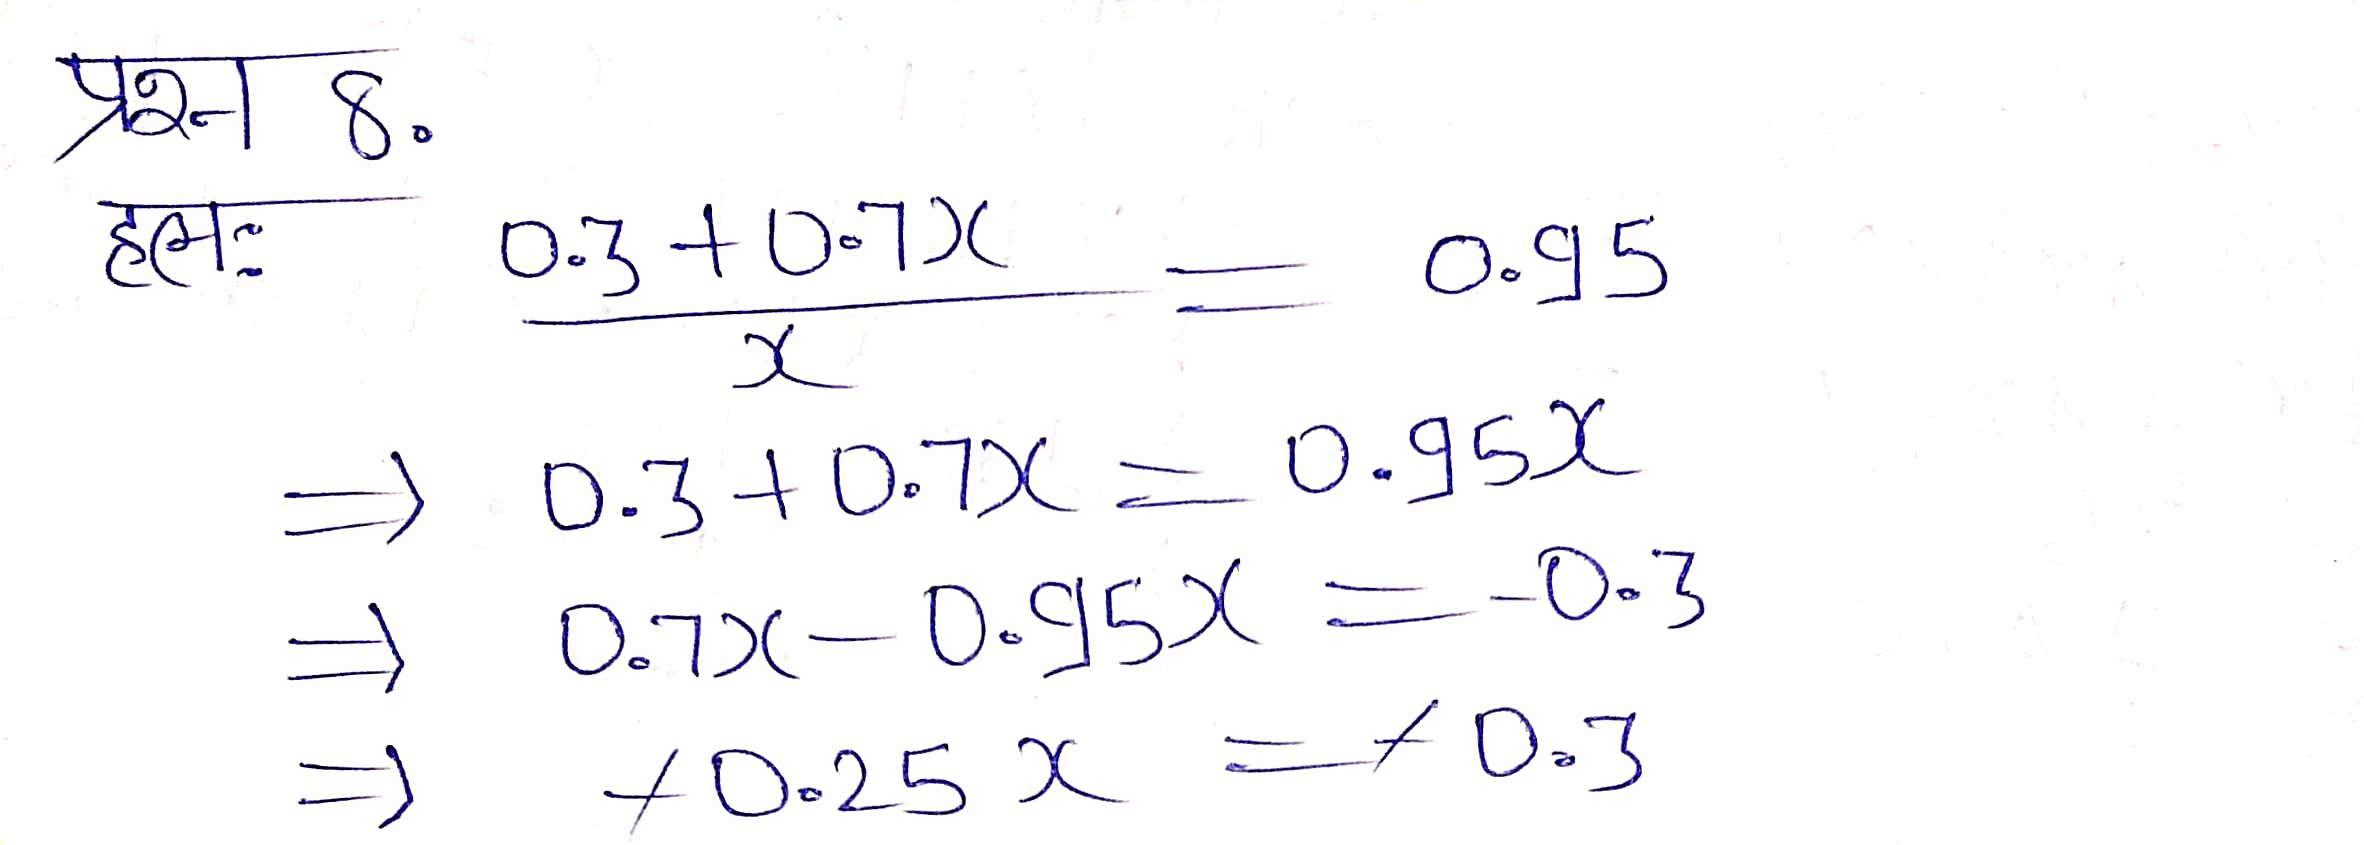 प्रश्न 8.
हल: (0.3 + 0.7x)/x = 0.95
⇒ 0.3 + 0.7x = 0.95x
⇒ 0.7x - 0.95x = -0.3
⇒ -0.25x = -0.3